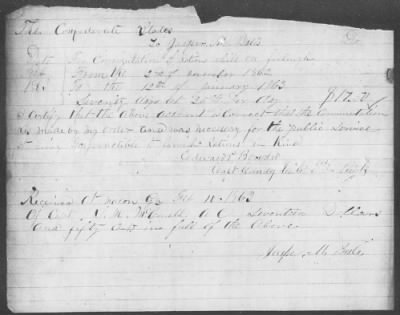 The Confederate States
To Jasper M. Dr
For Commutation of rations while on furlough
From the 2nd of november 1862
1863 To the 12th of January 1863
Seventy days at 25 cts Per day $17.50
I certify that the above account is correct that the commutation
was made by my order and was necessary for the public Service
it being impracticable to furnish rations in Kind
Edward
Capt
Received at macon Ga Feb 10 1863
Of Capt A C Seventeen Dollars
and fifty cts in full of the above.
Jasper M